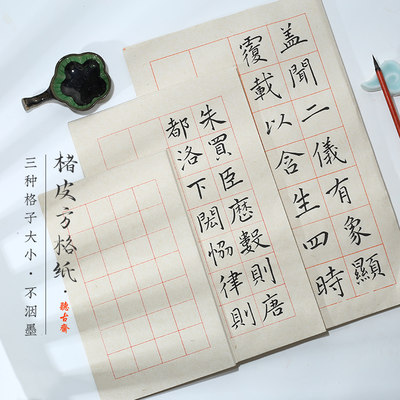 盖聞二儀有象顯
覆載以含生四時
朱買臣歷數則唐
都洛下閎恊律則
楮皮方格纸·
聽古齋
三种格子大小·不洇墨